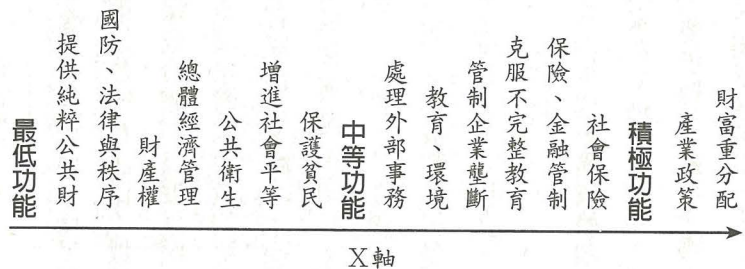 最低功能
提供純粹公共財
國防、法律與秩序
財產權
總體經濟管理
公共衛生
增進社會平等
保護貧民
中等功能
處理外部事務
教育、環境
管制企業壟斷
克服不完整教育
保險、金融管制
社會保險
積極功能
產業政策
財富重分配
X軸